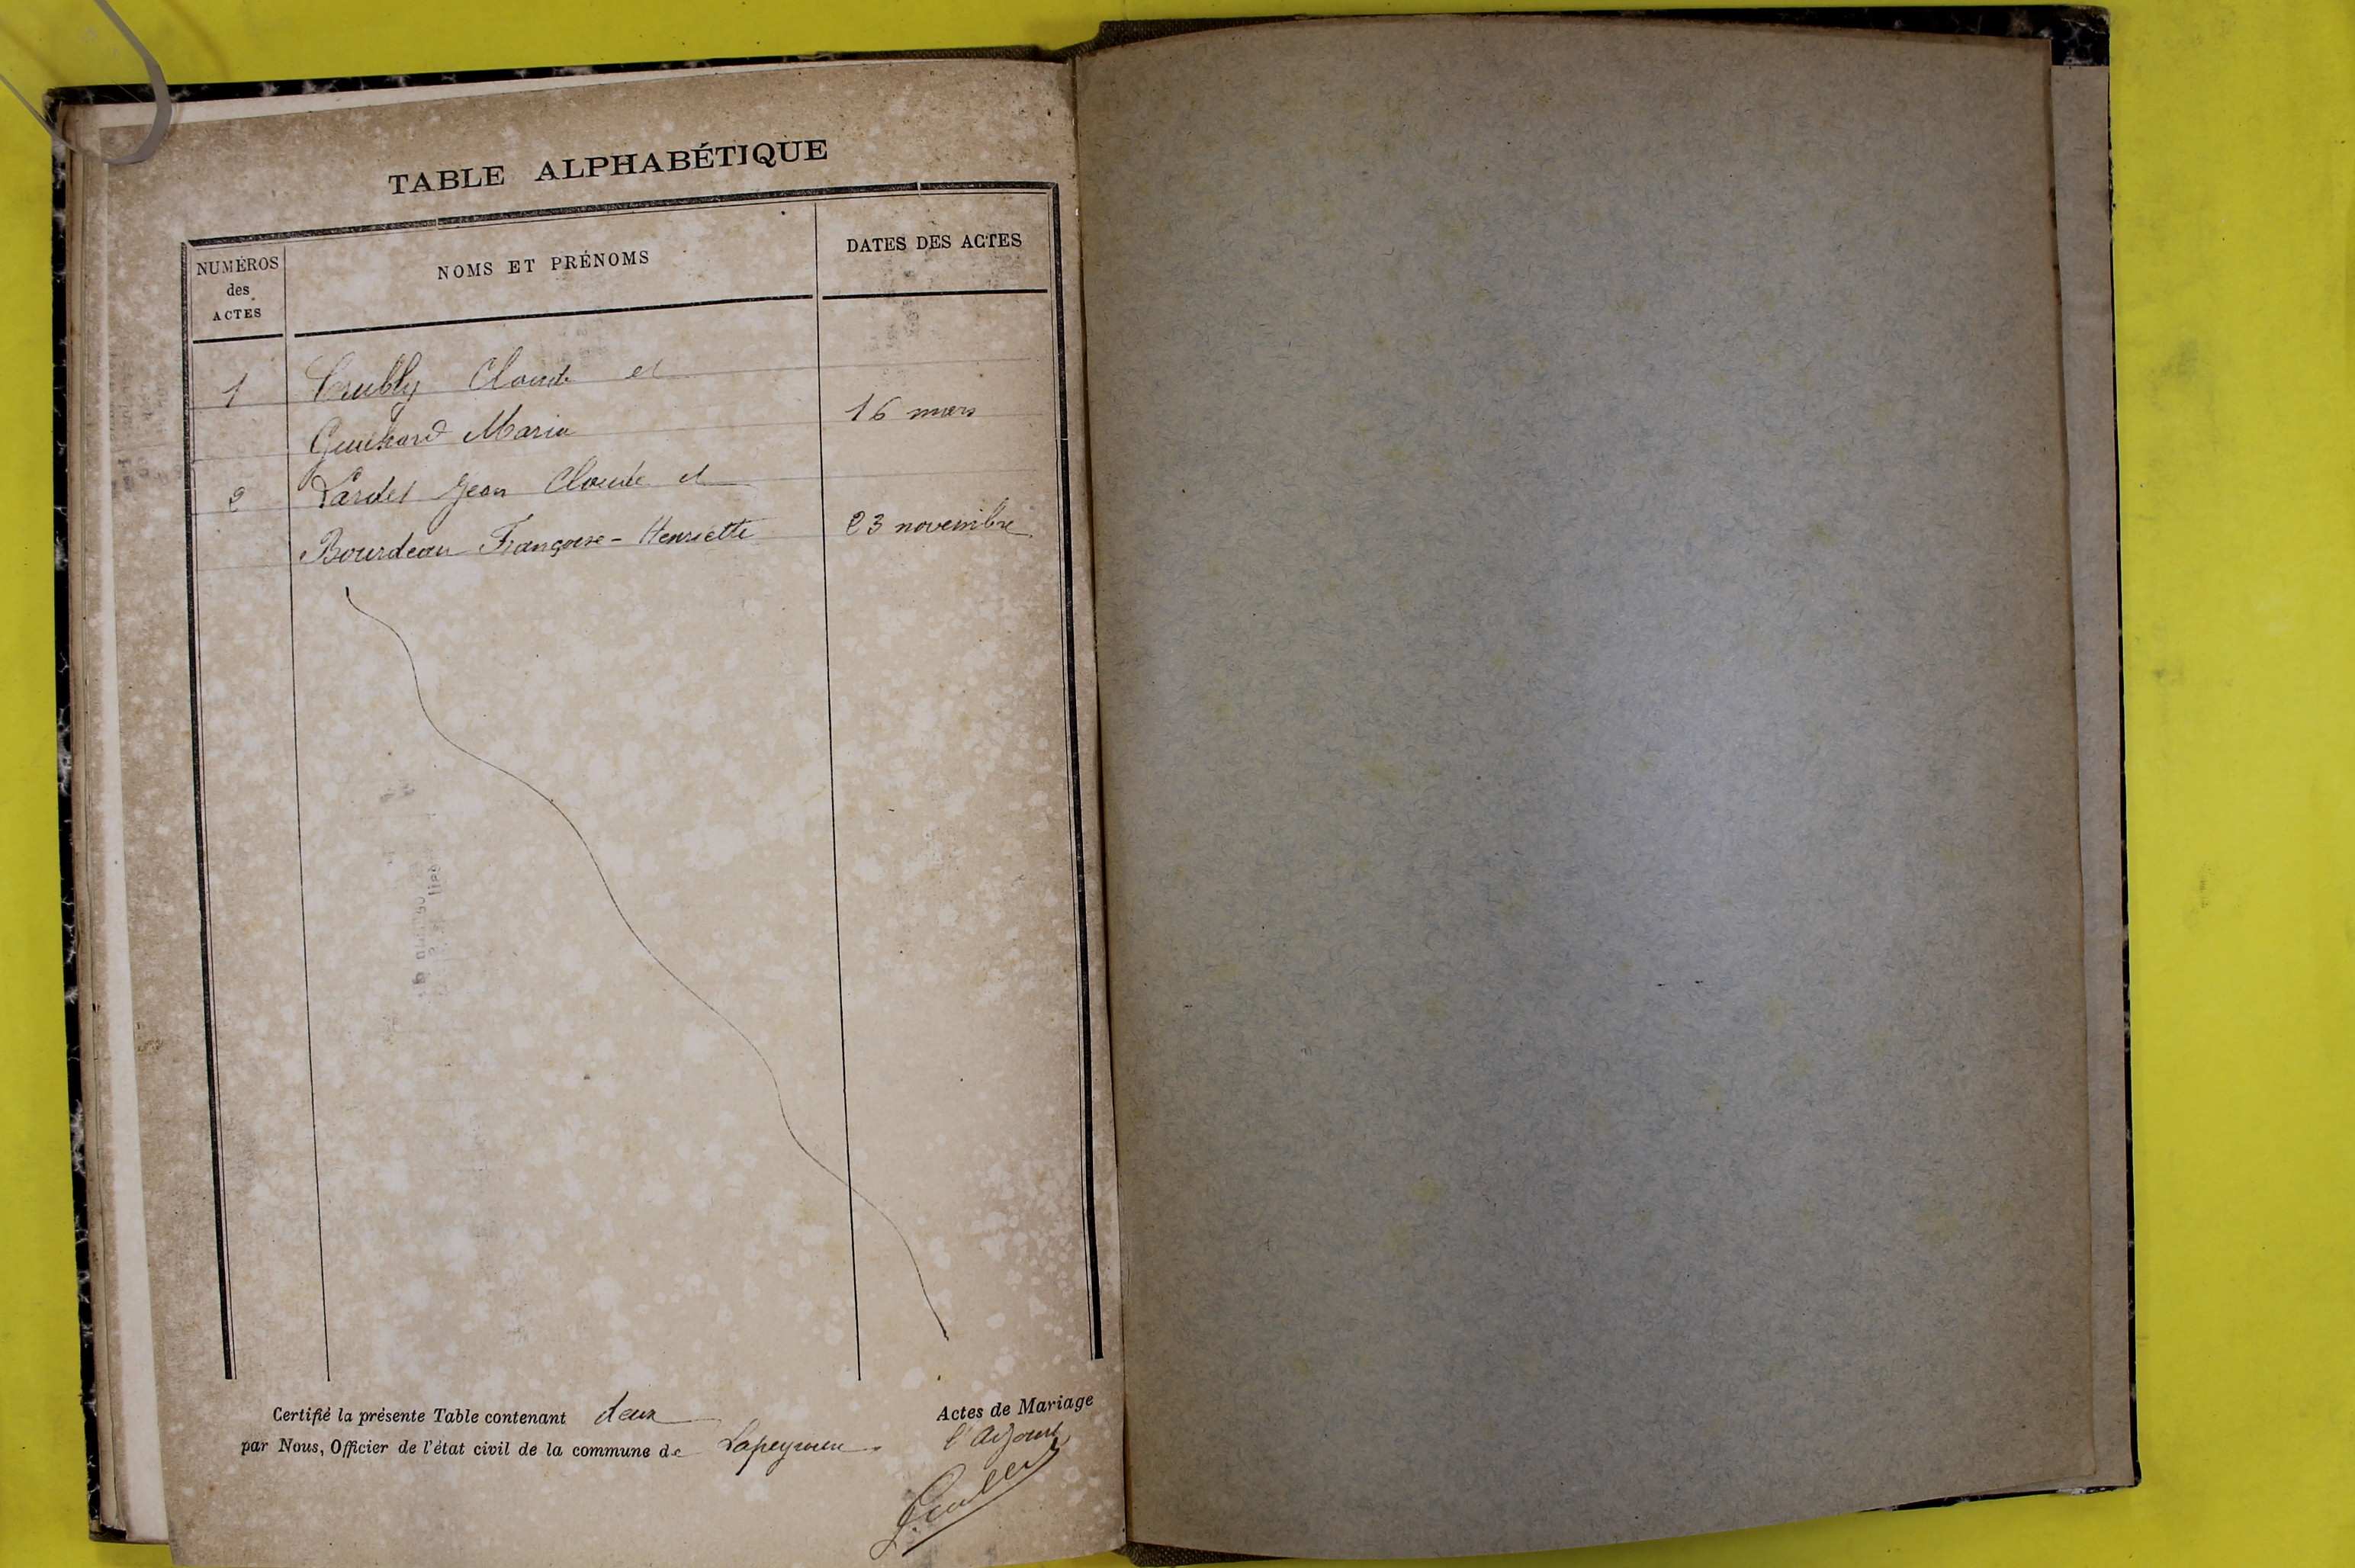 TABLE ALPHABÉTIQUE
NUMÉROS
des
ACTES
NOMS ET PRÉNOMS
DATES DES ACTES
1 Claude et
Guichard Maria 16 mars
2 Lardet Jean Claude et
Bourdeau Françoise-Henriette 23 novembre
Certifié la présente Table contenant deux Actes de Mariage
par Nous, Officier de l'état civil de la commune de Lapeyrouse. l'adjoint